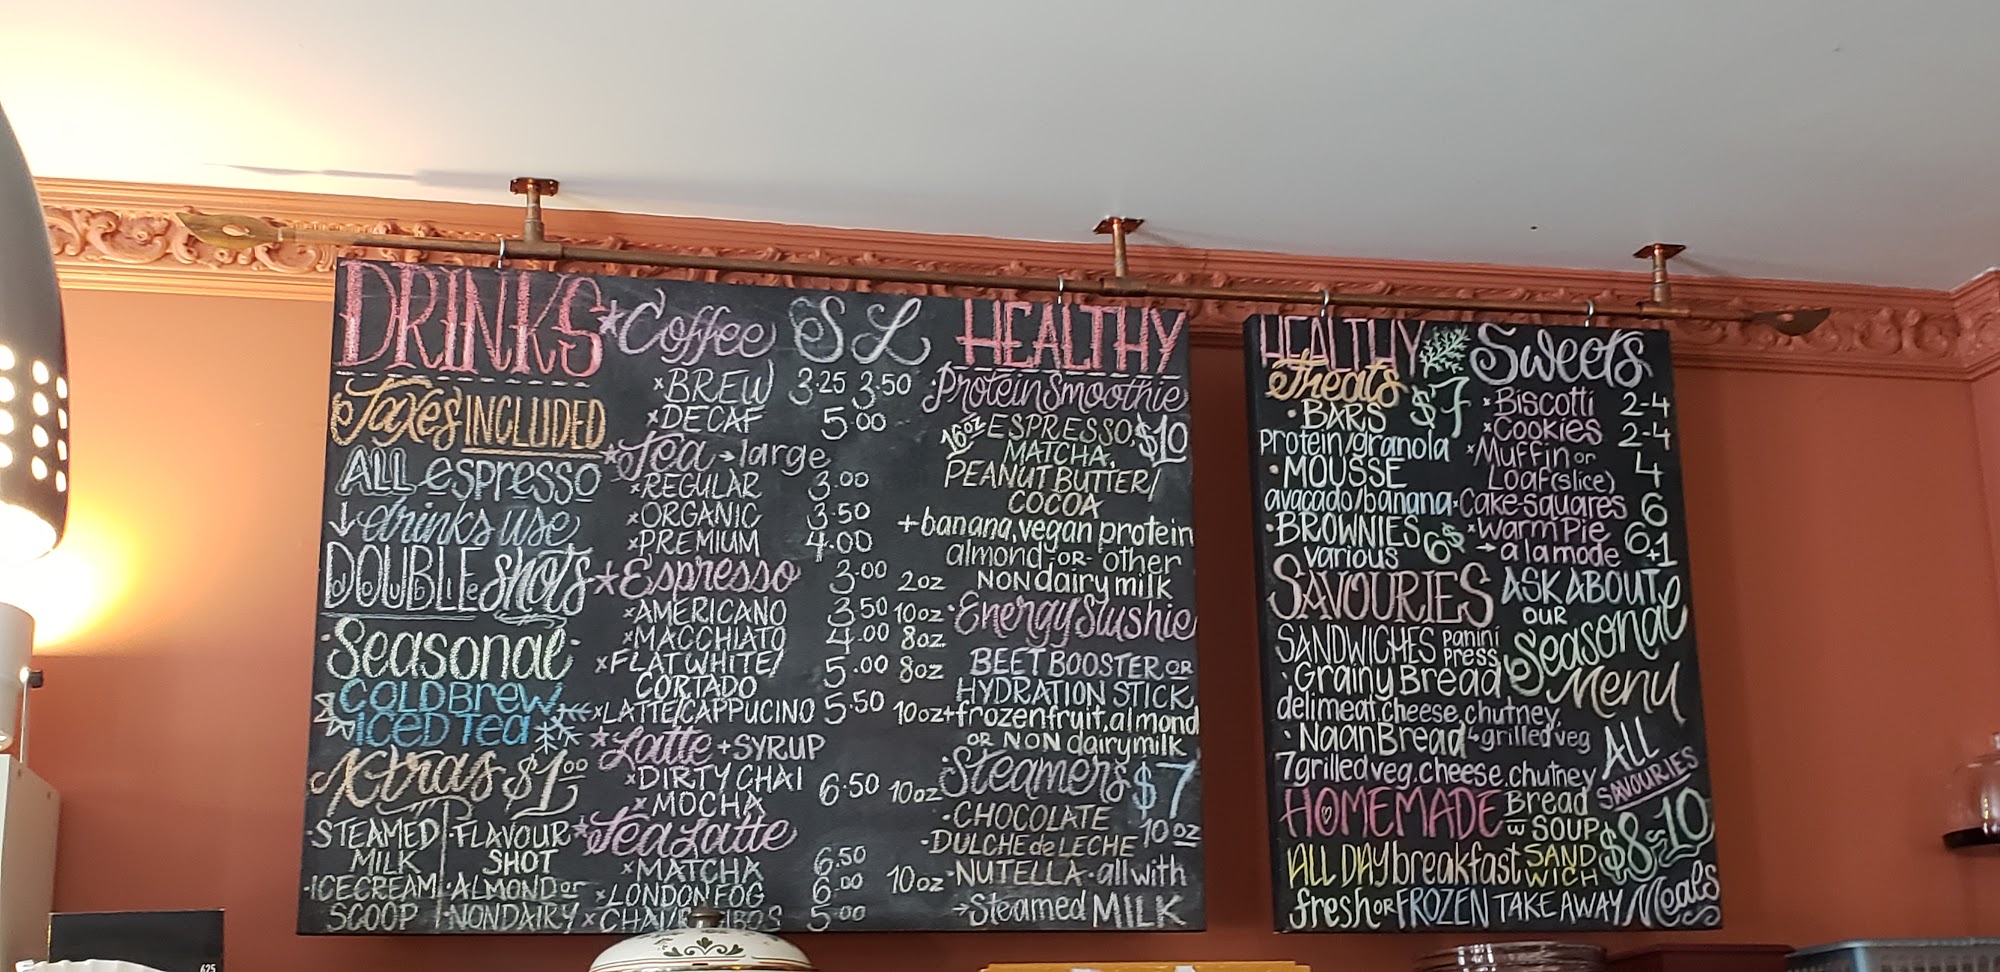 DRINKS
Taxes INCLUDED
ALL espresso
↓ drinks use
DOUBLE shots
Seasonal
COLD BREW
ICED TEA
Xtras $1.00
STEAMED MILK
ICECREAM SCOOP
FLAVOUR SHOT
ALMOND or NONDAIRY
Coffee S L
BREW 3.25 3.50
DECAF 5.00
Tea → large
REGULAR 3.00
ORGANIC 3.50
PREMIUM 4.00
Espresso 3.00 2oz
AMERICANO 3.50 10oz
MACCHIATO 4.00 8oz
FLAT WHITE/ 5.00 8oz
CORTADO
LATTE/CAPPUCINO 5.50 10oz
Latte + SYRUP
DIRTY CHAI 6.50 10oz
MOCHA
Tea Latte
MATCHA 6.50
LONDON FOG 6.00 10oz
CHAI 5.00
HEALTHY
Protein Smoothie
16oz ESPRESSO, $10
MATCHA,
PEANUT BUTTER/
COCOA
+banana, vegan protein
almond -OR- other
NON dairy milk
Energy Slushie
BEET BOOSTER OR
HYDRATION STICK
+frozen fruit, almond
OR NON dairy milk
Steamers $7
CHOCOLATE 10oz
DULCHE de LECHE
NUTELLA · all with
→ Steamed MILK
HEALTHY
Treats $7
BARS
protein/granola
MOUSSE
avacado/banana
BROWNIES 6$
various
SAVOURIES
SANDWICHES Panini Press
Grainy Bread
deli meat, cheese, chutney,
Naan Bread grilled veg
grilled veg, cheese, chutney
HOMEMADE Bread
w SOUP
ALL DAY breakfast SANDWICH
fresh OR FROZEN TAKE AWAY Meals
Sweets
Biscotti 2-4
Cookies 2-4
Muffin or 4
Loaf (slice)
Cake squares 6
Warm Pie 6
→ a la mode +1
ASK ABOUT
OUR
Seasonal
Menu
ALL
SAVOURIES
$8-10
625